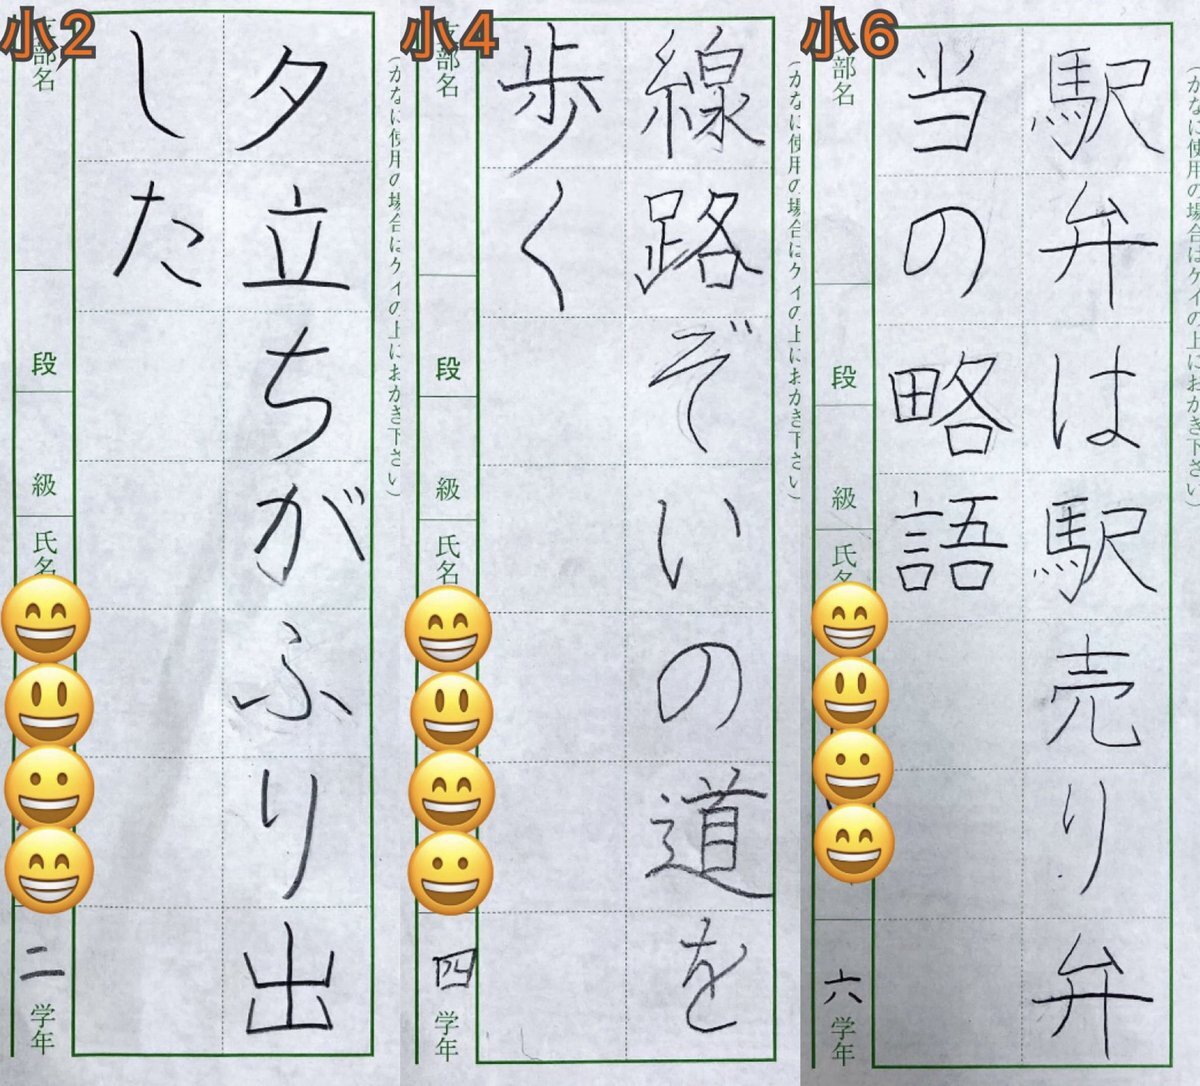 小2
夕立ちがふり出
した
支部名
段
級
氏名
二学年
(かなに使用の場合はケイの上におかき下さい)
小4
線路ぞいの道を
歩く
支部名
段
級
氏名
四学年
(かなに使用の場合はケイの上におかき下さい)
小6
駅弁は駅売り弁
当の略語
部名
段
級
氏名
六学年
(かなに使用の場合はケイの上におかき下さい)